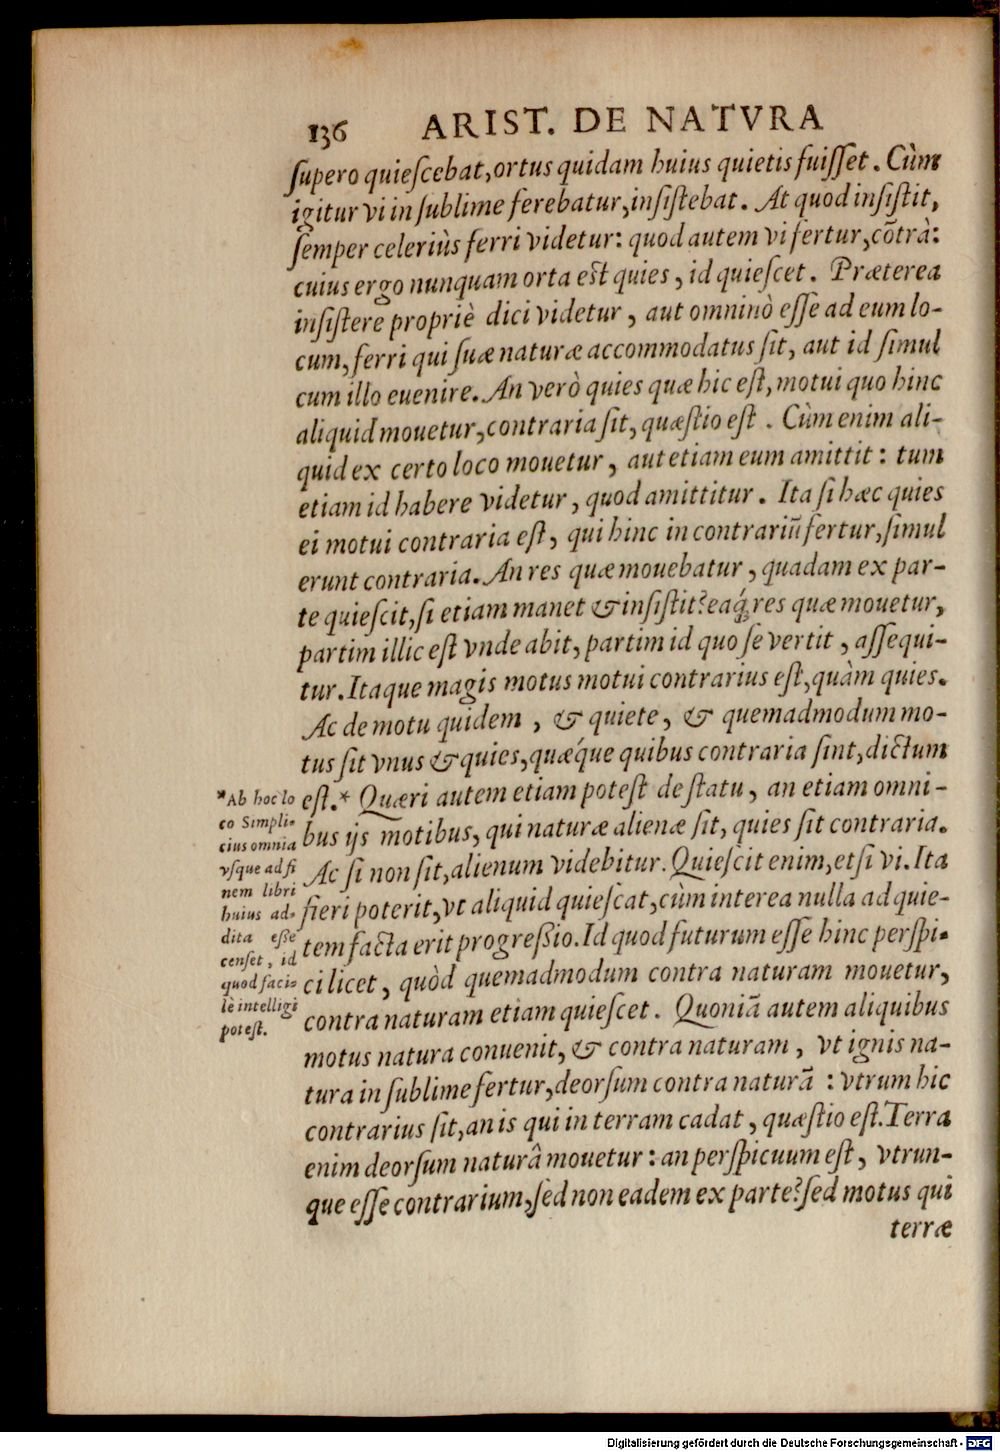 136 ARIST. DE NATVRA
ſupero quieſcebat, ortus quidam huius quietis fuiſſet. Cùm
igitur vi in ſublime ferebatur, inſiſtebat. At quod inſiſtit,
ſemper celeriùs ferri videtur: quod autem vi fertur, cõtrà:
cuius ergo nunquam orta est quies, id quieſcet. Præterea
inſiſtere propriè dici videtur, aut omninò eſſe ad eum lo-
cum, ferri qui ſuæ naturæ accommodatus ſit, aut id ſimul
cum illo euenire. An verò quies quæ hic eſt, motui quo hinc
aliquid mouetur, contraria ſit, quæſtio eſt. Cùm enim ali-
quid ex certo loco mouetur, aut etiam eum amittit: tum
etiam id habere videtur, quod amittitur. Ita ſi hæc quies
ei motui contraria eſt, qui hinc in contrariũ fertur, ſimul
erunt contraria. An res quæ mouebatur, quadam ex par-
te quieſcit, ſi etiam manet & inſiſtit? eaq́; res quæ mouetur,
partim illic eſt vnde abit, partim id quo ſe vertit, aſſequi-
tur. Itaque magis motus motui contrarius eſt, quàm quies.
Ac de motu quidem, & quiete, & quemadmodum mo-
tus ſit vnus & quies, quǽque quibus contraria ſint, dictum
eſt.* Quæri autem etiam poteſt de ſtatu, an etiam omni-
bus ijs motibus, qui naturæ alienæ ſit, quies ſit contraria.
Ac ſi non ſit, alienum videbitur. Quieſcit enim, etſi vi. Ita
fieri poterit, vt aliquid quieſcat, cùm interea nulla ad quie-
tem facta erit progreßio. Id quod futurum eſſe hinc perſpi-
ci licet, quòd quemadmodum contra naturam mouetur,
contra naturam etiam quieſcet. Quoniã autem aliquibus
motus natura conuenit, & contra naturam, vt ignis na-
tura in ſublime fertur, deorſum contra naturã: vtrum hic
contrarius ſit, an is qui in terram cadat, quæſtio eſt. Terra
enim deorſum naturâ mouetur: an perſpicuum eſt, vtrun-
que eſſe contrarium, ſed non eadem ex parte? ſed motus qui
terræ
*Ab hoc lo
co Simpli-
cius omnia
vſque ad fi
nem libri
huius ad-
dita eße
cenſet, id
quod faci-
lè intelligi
poteſt.
Digitalisierung gefördert durch die Deutsche Forschungsgemeinschaft - DFG